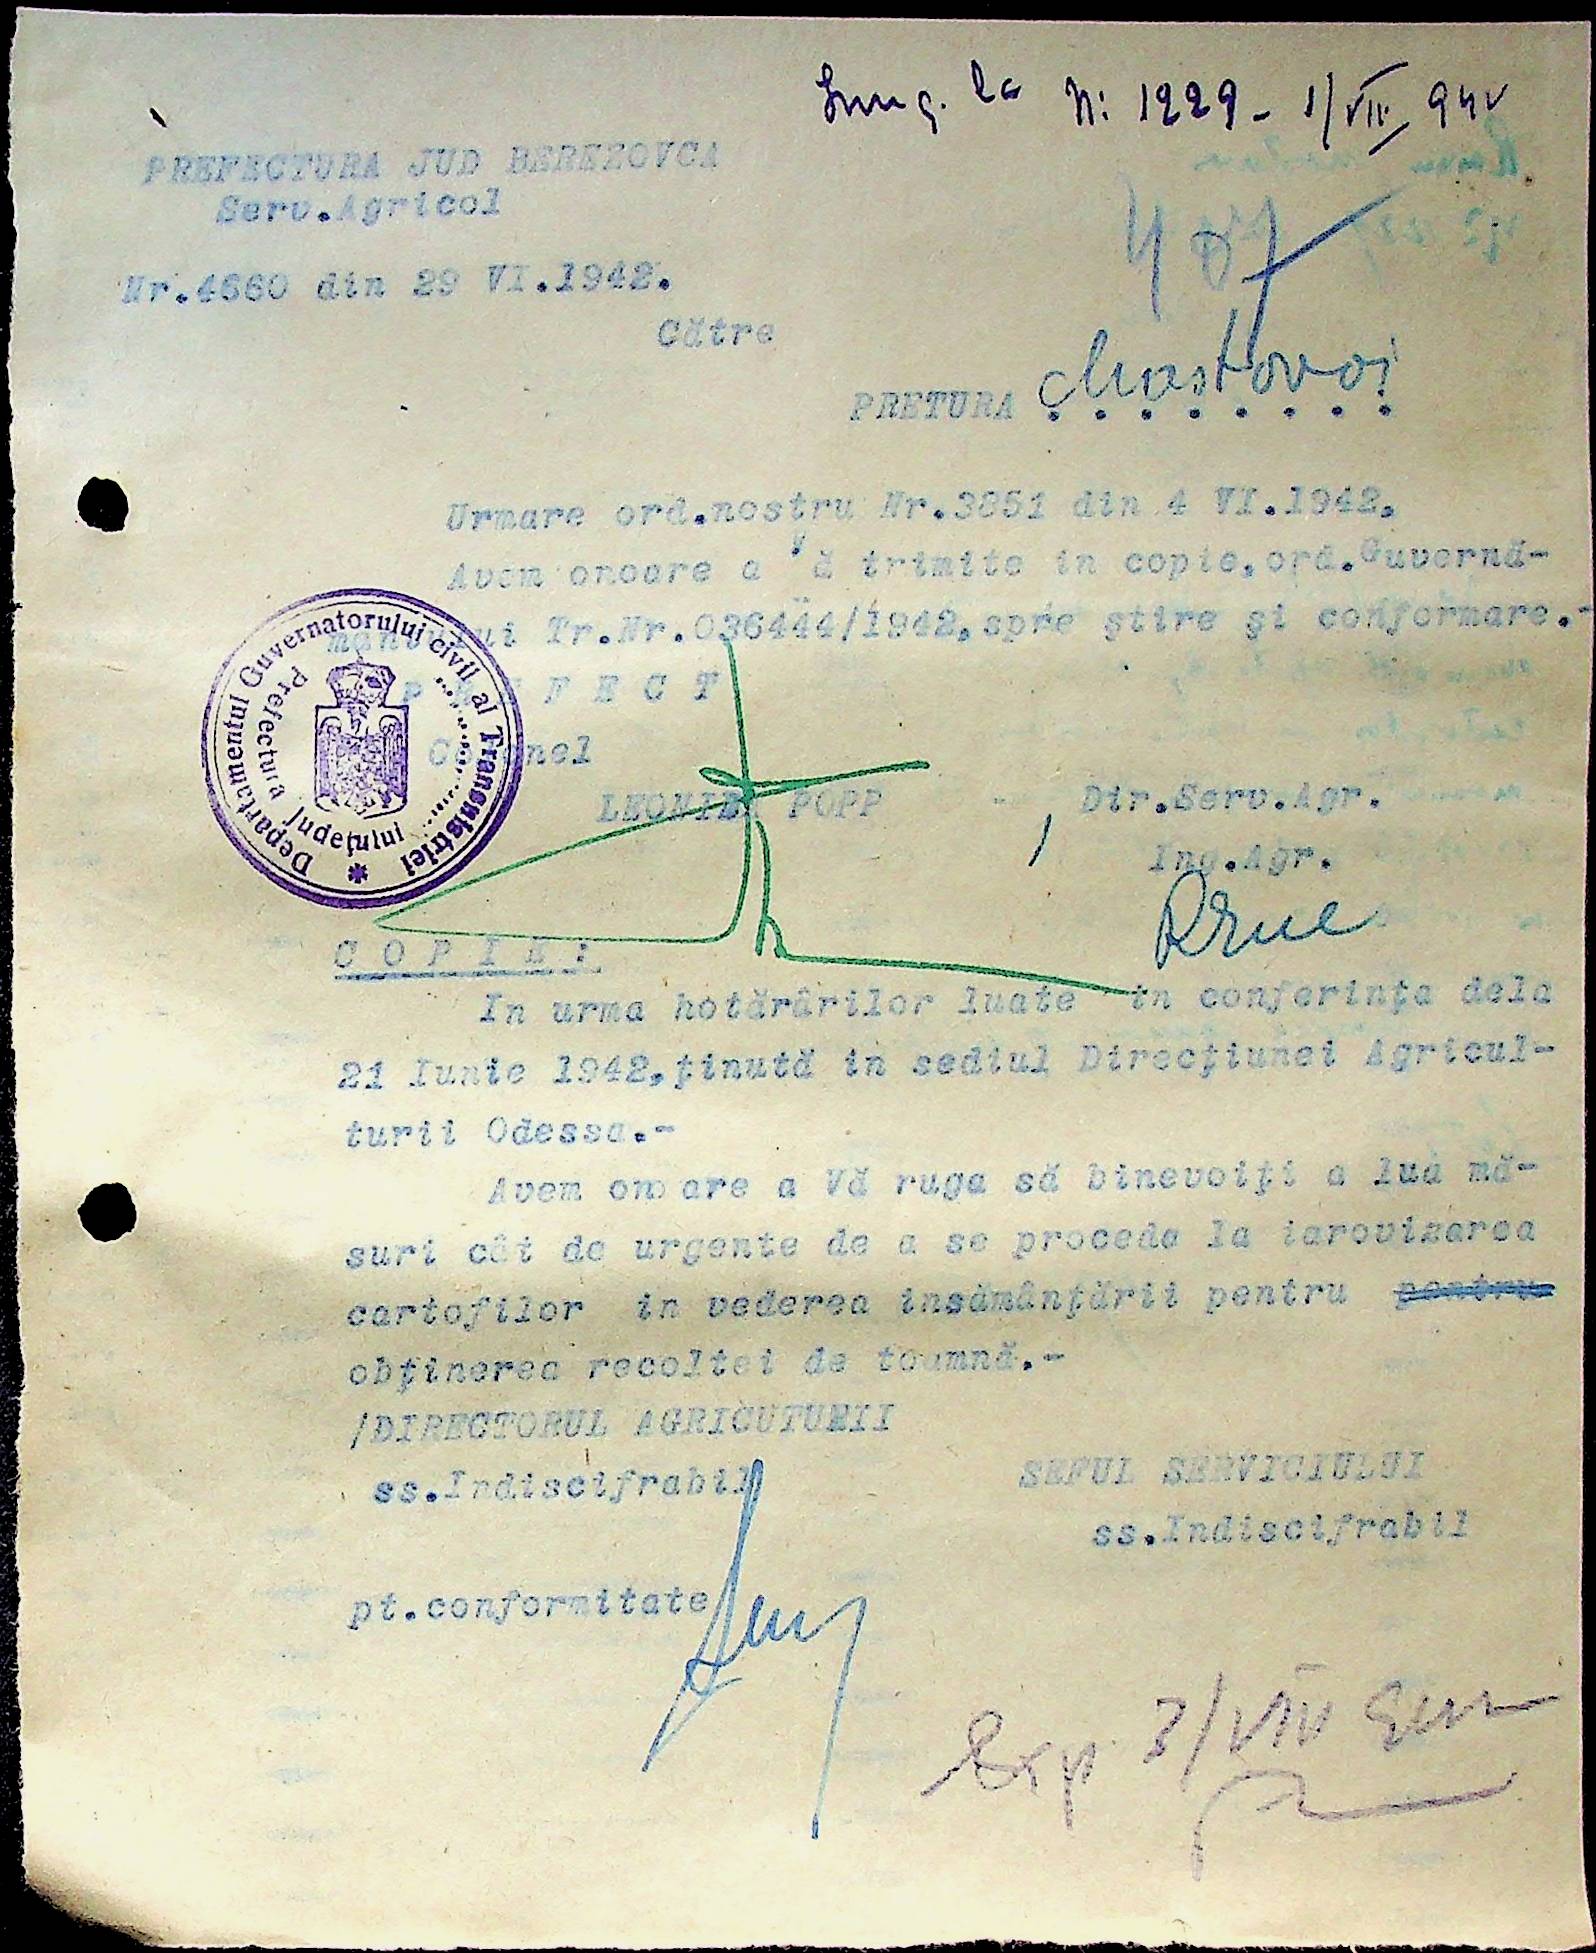 la Nr 1229 - 1/VII 942
PREFECTURA JUD BEREZOVCA
Serv.Agricol
Nr.4660 din 29 VI.1942.
Către
PRETURA Mostovoi
Urmare ord.nostru Nr.3851 din 4 VI.1942,
Avem onoare a Vă trimite in copie,ord.Guvernă-
mantului Tr.Nr.036444/1942,spre ştire şi conformare.-
P R E F E C T
Colonel
LEONIDA POPP
Dir.Serv.Agr.
Ing.Agr.
Departamentul Guvernatorului civil al Transnistriei
Prefectura Judeţului
C O P I E :
In urma hotărârilor luate in conferinţa dela
21 Iunie 1942,ţinută in sediul Direcţiunei Agricul-
turii Odessa.-
Avem onoare a Vă ruga să binevoiţi a lua mă-
suri cât de urgente de a se proceda la iarovizarea
cartofilor in vederea insămânţării pentru pentru
obţinerea recoltei de toamnă.-
/DIRECTORUL AGRICUTURII
ss.Indiscifrabil
SEFUL SERVICIULUI
ss.Indiscifrabil
pt.conformitate